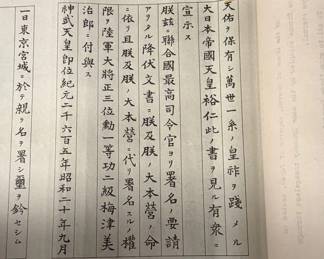 天佑ヲ保有シ萬世一系ノ皇祚ヲ踐メル
大日本帝國天皇裕仁此ノ書ヲ見ル有衆ニ
宣示ス
朕茲ニ聯合國最高司令官ヨリ署名ノ要請
アリタル降伏文書ニ朕及朕ノ大本營ノ命
ニ依リ且朕及朕ノ大本營ニ代リ署名スルノ權
限ヲ陸軍大將正三位勳一等功二級梅津美
治郎ニ付與ス
神武天皇即位紀元二千六百五年昭和二十年九月
一日東京宮城ニ於テ親ラ名ヲ署シ璽ヲ鈐セシム